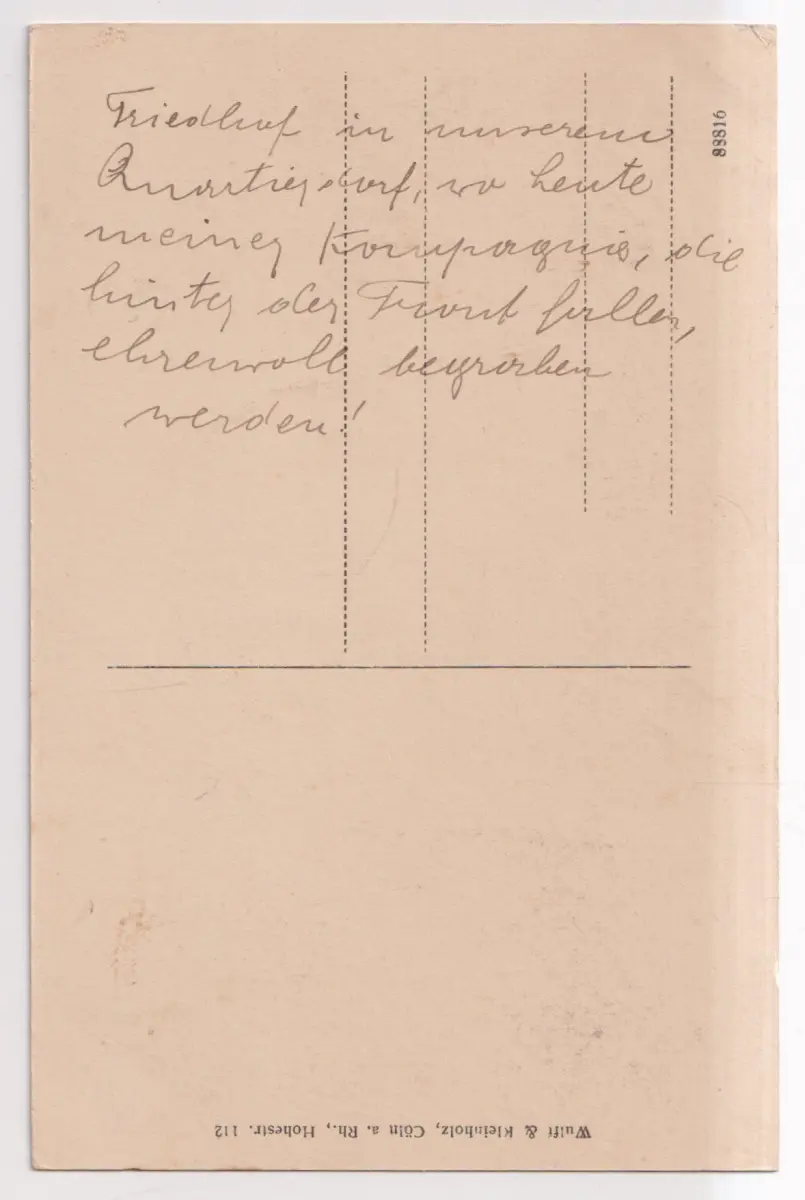 Friedhof in unserem
Quartierdorf, wo heute
meiner Kompagnie, die
hinter der Front fallen,
ehrenvoll begraben
werden!
88816
Wulff & Kleinholz, Cöln a. Rh., Hohestr. 112